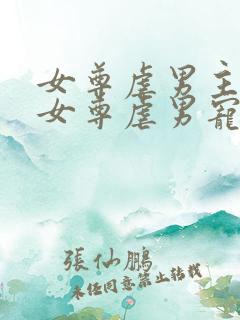 女尊虐男主
女尊虐男寵
張仙鵬
未经同意禁止转载